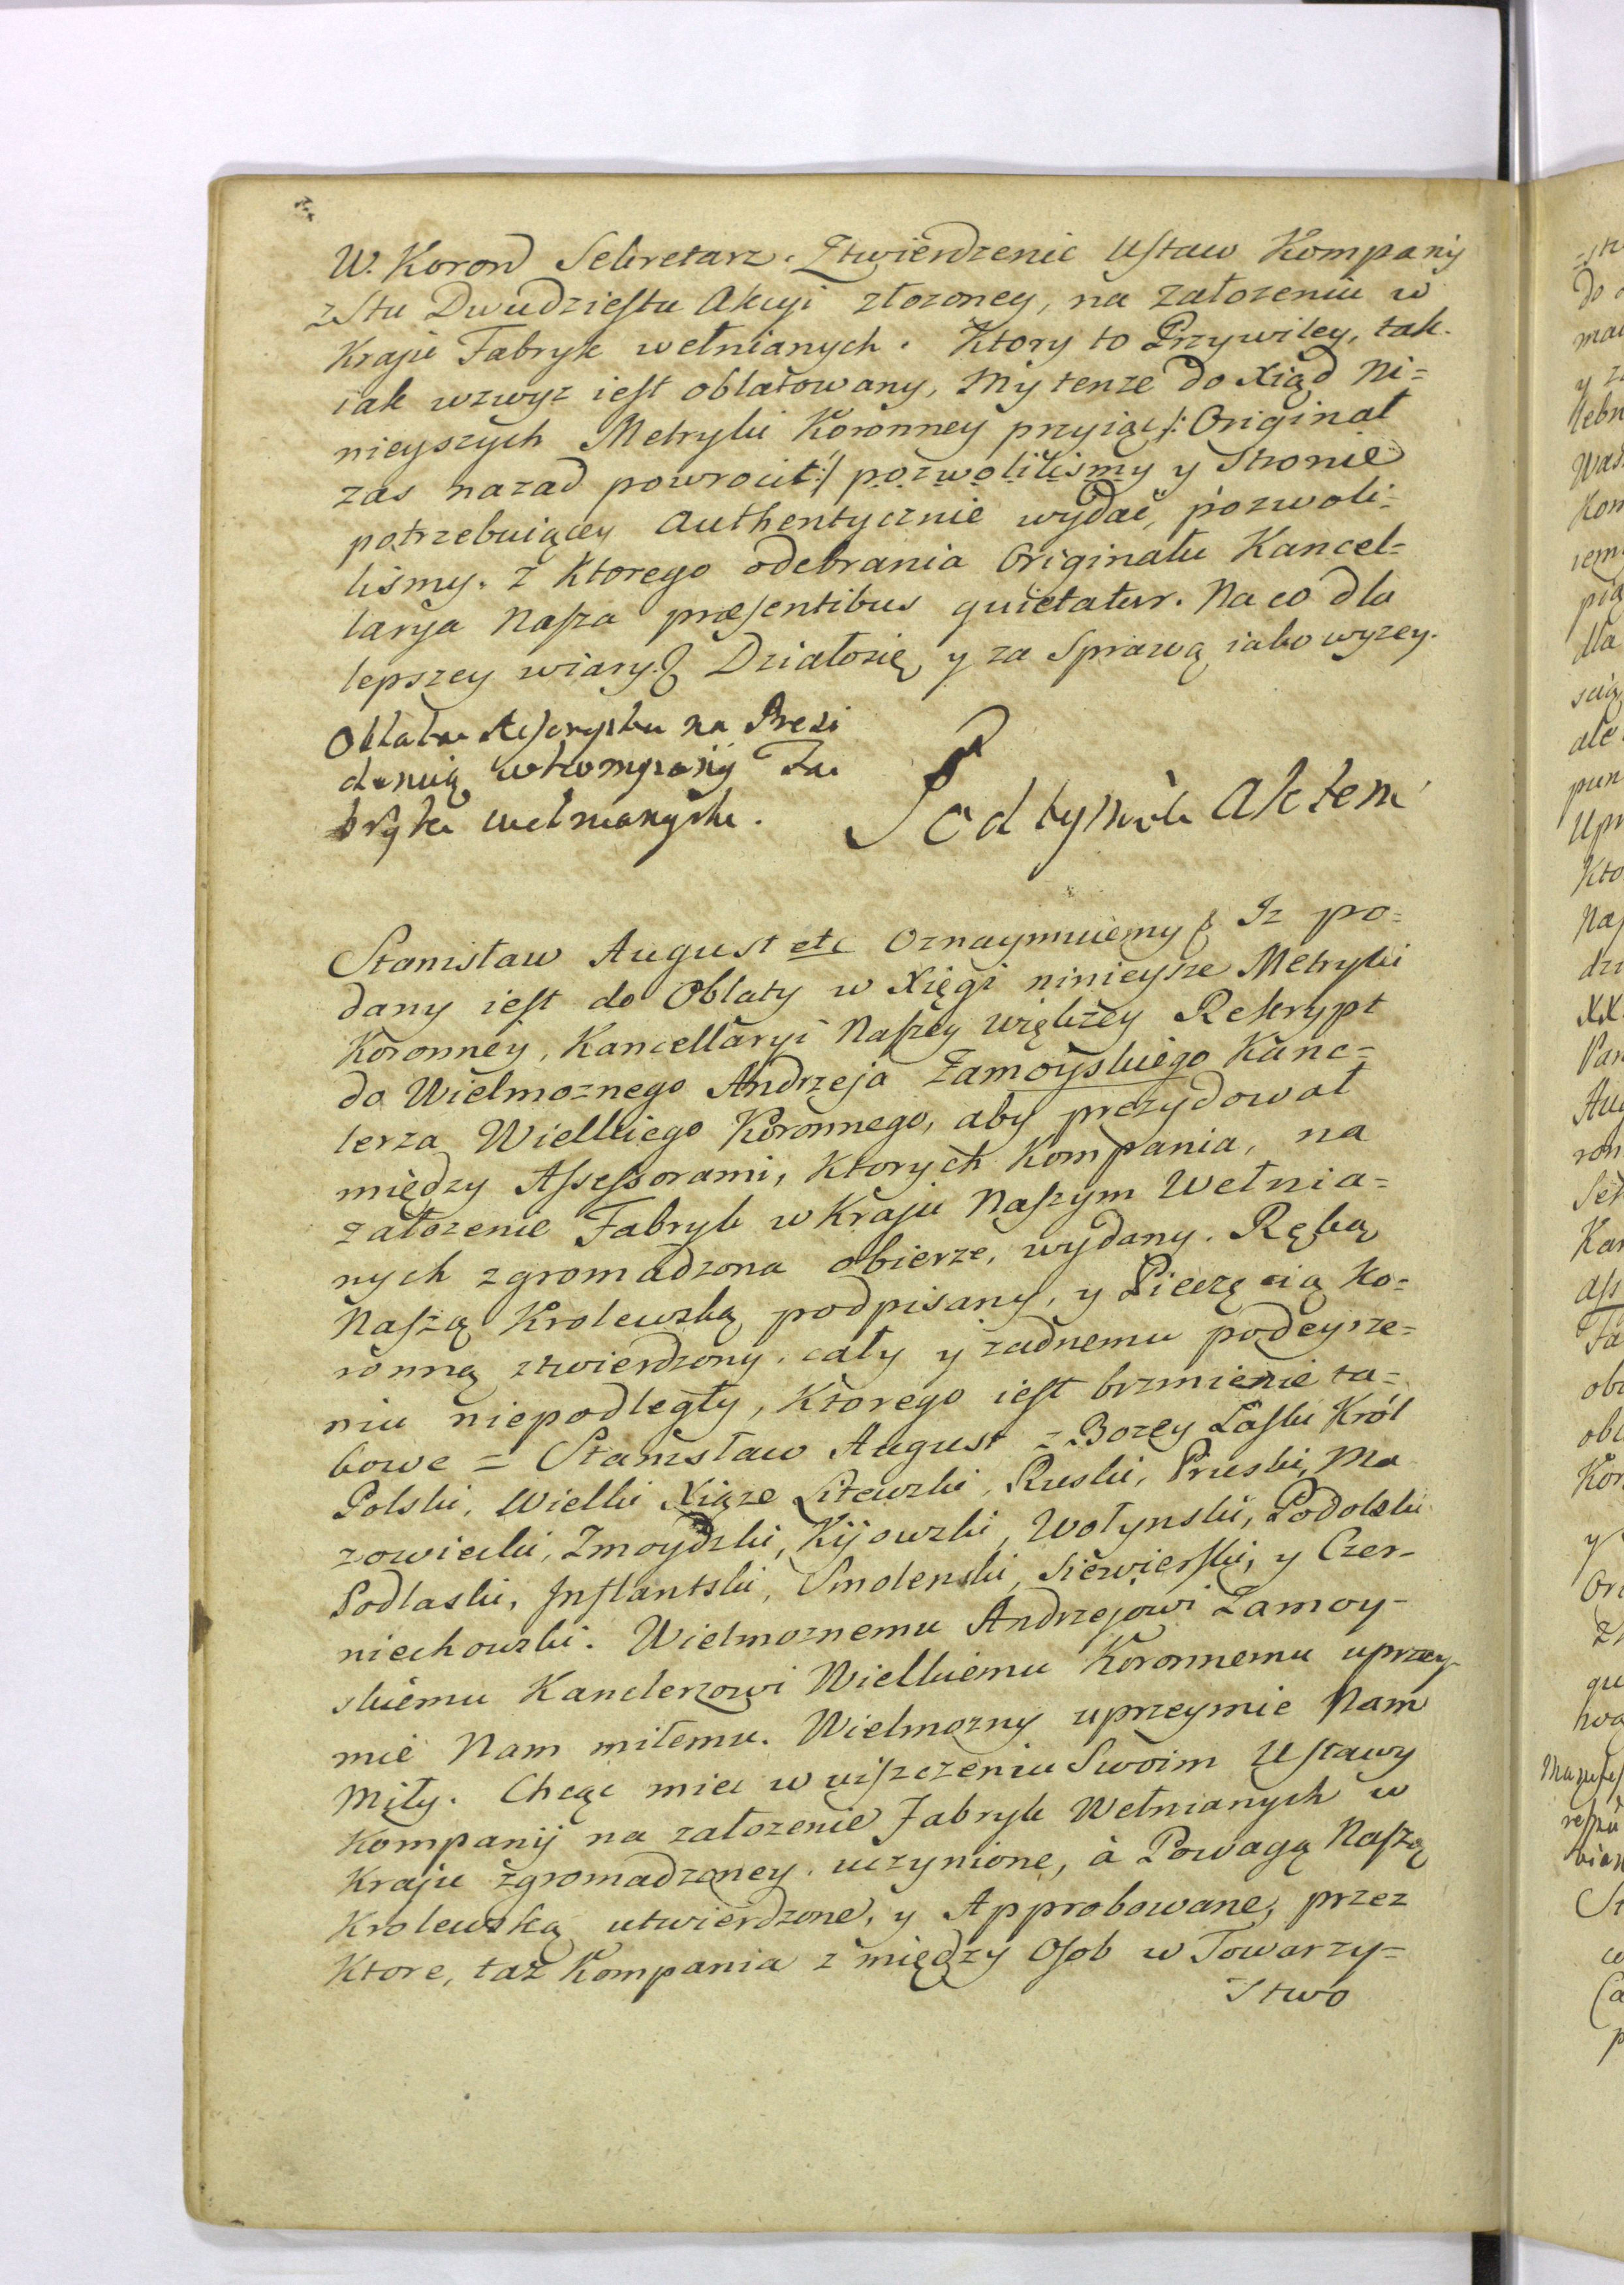 W. Koron Sekretarz. Ztwierdzenie Ustaw Kompanij
z Stu Dwudziestu Akcyi złozoney, na Załozeniu w
Kraju Fabryk wełnianych. Ktory to Przywiley, tak
iak wzwyz iest oblatowany, My tenze do Xiąg Ni=
nieyszych Metryki Koronney przyiąc /: Originał
zas nazad powrocił :/ pozwolilismy y Stronie
potrzebuiącey Authentycznie wydać, pozwoli=
lismy. z Ktorego odebrania Originału Kancel=
larya Nasza præsentibus quietatur. Na co dla
lepszey wiary. Działosię y za Sprawą iako wyzey.
Oblata Reskryptu na Prezi
dencią w kompanij Fa
bryk wełnianych.
Pod tymże Aktem
Stanisław August etc Oznaymuiemy Iz po=
dany iest do Oblaty w Xięgi ninieysze Metryki
Koronney, Kancellaryi Naszey więkzey Reskrypt
do Wielmoznego Andrzeja Zamoyskiego Kanc=
lerza Wielkiego Koronnego, aby prezydował
między Assessorami, Ktorych Kompania, na
załozenie Fabryk w Kraju Naszym Wełnia=
nych zgromadzona obierze, wydany. Ręką
Naszą Krolewską podpisany, y Pieczęcią Ko=
ronną ztwierdzony, cały y zadnemu podeyrze=
niu niepodległy, Ktorego iest brzmienie ta=
kowe = Stanisław August z Bozey Łaski Król
Polski, Wielki Xiąze Litewski, Ruski, Pruski, Ma
zowiecki, Zmoydzki, Kijowski, Wołynski, Podolski
Podlaski, Inflantski, Smolenski, Siewierski, y Czer-
niechowski. Wielmoznemu Andrzejowi Zamoy-
skiemu Kanclerzowi Wielkiemu Koronnemu uprzey-
mie Nam miłemu. Wielmozny uprzeymie Nam
Miły. Chcąc miec w uiszczeniu Swoim Ustawy
Kompanij na załozenie Fabryk Wełnianych w
Kraju zgromadzoney uczynione, à Powagą Naszą
Krolewską utwierdzone, y Approbowane, przez
Ktore, taż Kompania z między Osob w Towarzy=
stwo